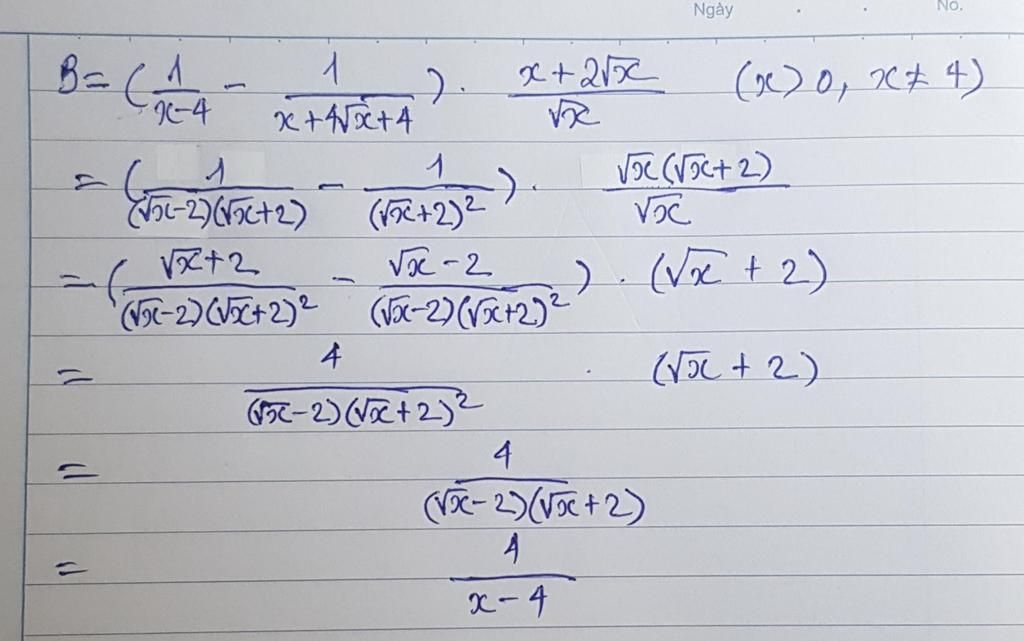 Ngày . . No.
B = (1/(x-4) - 1/(x+4√x+4)) . (x+2√x)/√x (x>0, x≠4)
= (1/((√x-2)(√x+2)) - 1/(√x+2)²) . √x(√x+2)/√x
= ((√x+2)/((√x-2)(√x+2)²) - (√x-2)/((√x-2)(√x+2)²)) . (√x+2)
= 4/((√x-2)(√x+2)²) . (√x+2)
= 4/((√x-2)(√x+2))
= 4/(x-4)